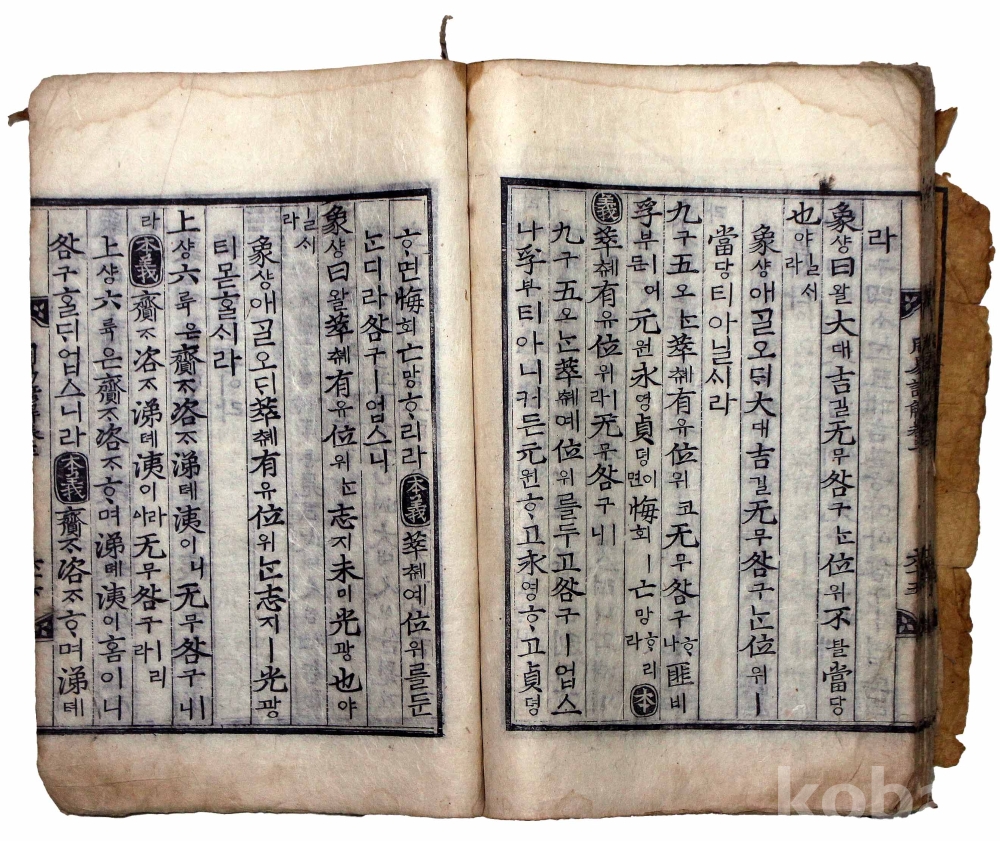 라
象샹曰왈大대吉길无무咎구ᄂᆞᆫ位위不블當당
也야ㅣㄹᄉᆡ라
象샹애ᄀᆞᆯ오ᄃᆡ大대吉길无무咎구ᄂᆞᆫ位위ㅣ
當당티아닐ᄉᆡ라
九구五오ᄂᆞᆫ萃췌有유位위코无무咎구ᄒᆞ나匪비
孚부ㅣ어든元원永영貞뎡이면悔회ㅣ亡망ᄒᆞ리라本
義萃췌有유位위라无무咎구ㅣ니
九구五오ᄂᆞᆫ萃췌예位위를두고咎구ㅣ업스
나孚부티아니커든元원ᄒᆞ고永영ᄒᆞ고貞뎡
ᄒᆞ면悔회亡망ᄒᆞ리라本義萃췌예位위를둔
ᄂᆞᆫ디라咎구ㅣ업스니
象샹曰왈萃췌有유位위ᄂᆞᆫ志지未미光광也야
ㅣㄹᄉᆡ라
象샹애ᄀᆞᆯ오ᄃᆡ萃췌有유位위ᄂᆞᆫ志지ㅣ光광
티몯ᄒᆞᆯᄉᆡ라
上샹六륙은齎ᄌᆞ咨ᄌᆞ涕톄洟이니无무咎구ㅣ니
라本義齎ᄌᆞ咨ᄌᆞ涕톄洟이이라无무咎구ㅣ리라
上샹六륙은齎ᄌᆞ咨ᄌᆞᄒᆞ며涕톄洟이홈이니
咎구홀ᄃᆡ업스니라本義齎ᄌᆞ咨ᄌᆞᄒᆞ며涕톄